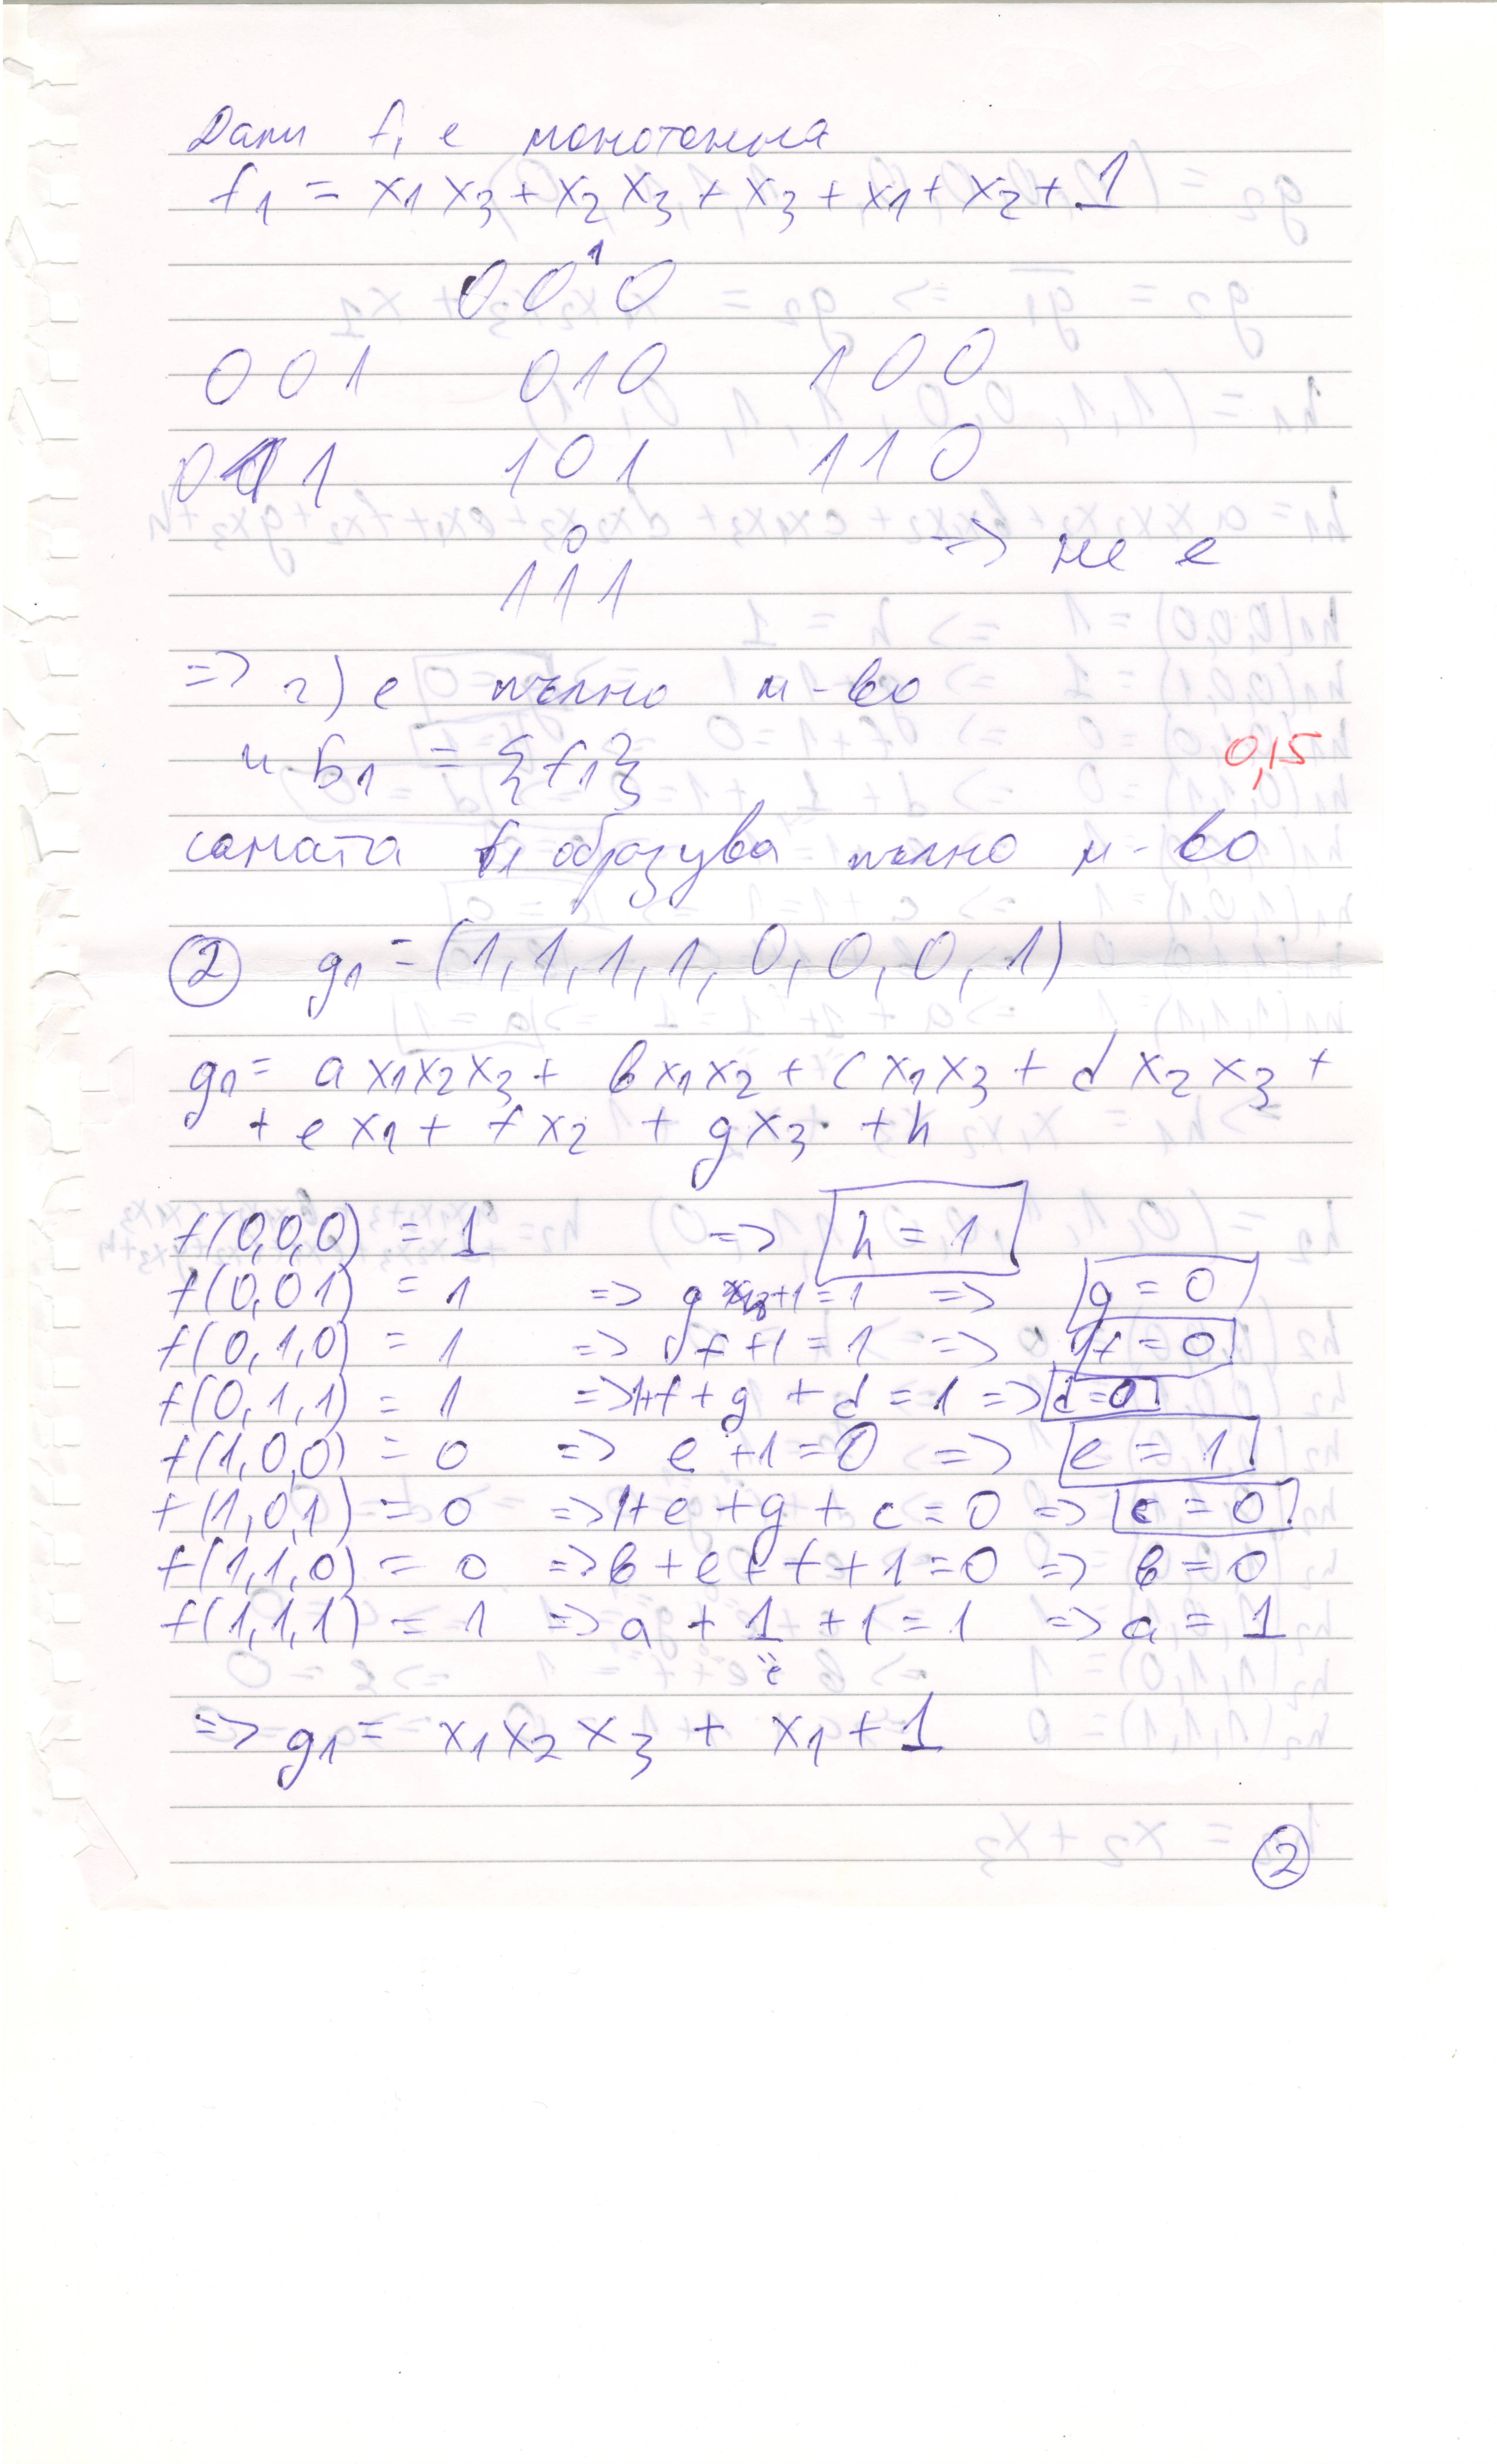 Дали f₁ е монотонна
f₁ = x₁x₃ + x₂x₃ + x₃ + x₁ + x₂ + 1
1
0 0 0
0 0 1 0 1 0 1 0 0
0 1 1 1 0 1 1 1 0
0
1 1 1 => не е
=> г) е пълно м-во
и Б₁ = {f₁}
0,15
самата f₁ образува пълно м-во
② g₁ = (1, 1, 1, 1, 0, 0, 0, 1)
g₁ = a x₁x₂x₃ + b x₁x₂ + c x₁x₃ + d x₂x₃ +
+ e x₁ + f x₂ + g x₃ + h
f(0,0,0) = 1 => h = 1
f(0,0 1) = 1 => g +1 = 1 => g = 0
f(0,1,0) = 1 => f +1 = 1 => f = 0
f(0,1,1) = 1 => 1+f + g + d = 1 => d = 0
f(1,0,0) = 0 => e +1 = 0 => e = 1
f(1,0,1) = 0 => 1+e + g + c = 0 => c = 0
f(1,1,0) = 0 => b + e + f + 1 = 0 => b = 0
f(1,1,1) = 1 => a + 1 + 1 = 1 => a = 1
e
=> g₁ = x₁x₂x₃ + x₁ + 1
②